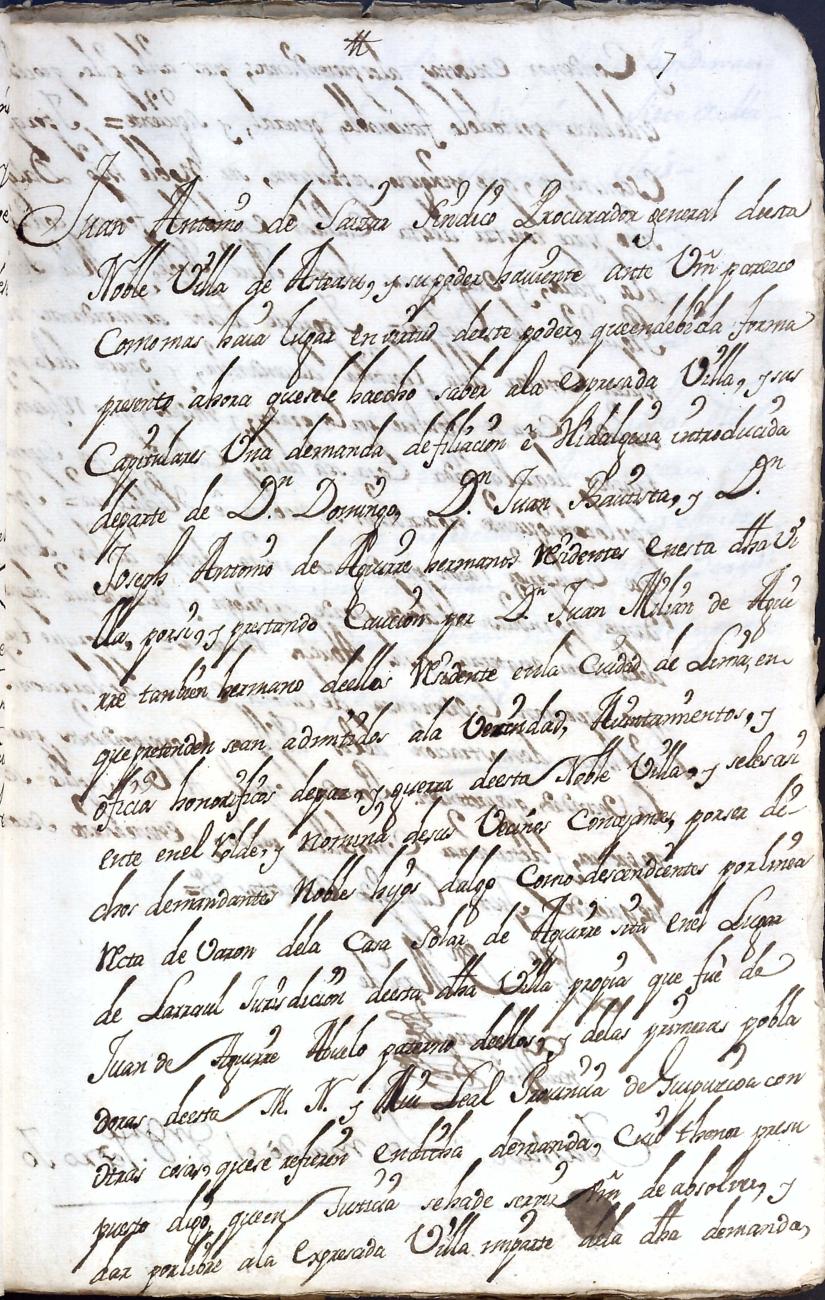 7
Juan Antonio de Saizar Sindico Procurador general desta
Noble Villa de Asteasu, y su poder haviente ante Vm̃ parezco
Comomas haia lugar envirtud deeste poder, queendebida forma
presento, ahora quesele haecho saber ala expresada Villa, y sus
Capitulares Una demanda defiliacion è Hidalguia introducida
departe de Dn. Domingo, Dn. Juan Bautista, y Dn.
Joseph Antonio de Aguirre hermanos Residentes enesta dha Vi
lla, porsi, y prestando Caucion por Dn. Juan Milian de Agui
rre tanbien hermano deellos Residente enla Ciudad de Lima, en
quepretenden sean admitidos ala Vecindad, Aiuntamientos, y
oficios honorificos depaz, y guerra deesta Noble Villa, y selesasi
ente enel Rolde, y Nomina desus Vecinos Concejantes, porser di-
chos demandantes Noble hijos dalgo Como descendientes porlinea
Recta de Varon dela Casa Solar de Aguirre sita enel Lugar
de Larraul Jurisdicion deesta dha Villa propia que fuè de
Juan de Aguirre Abuelo paterno deellos, y delas primeras pobla
doras deesta M. N. y Mui Leal Provincia de Guipuzcoa con
otras cosas, quese refieren endicha demanda, Cuio thenor presu
puesto digo, queen Justicia sehade servir Vm̃ de absolver, y
dar porlibre ala expresada Villa miparte dela dha demanda,